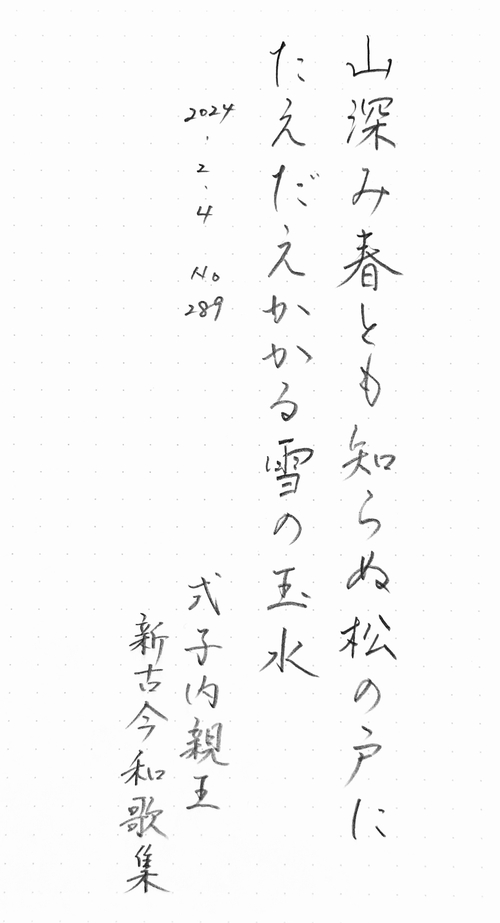 山深み春とも知らぬ松の戸に
たえだえかかる雪の玉水
2024.2.4 No 289
式子内親王
新古今和歌集